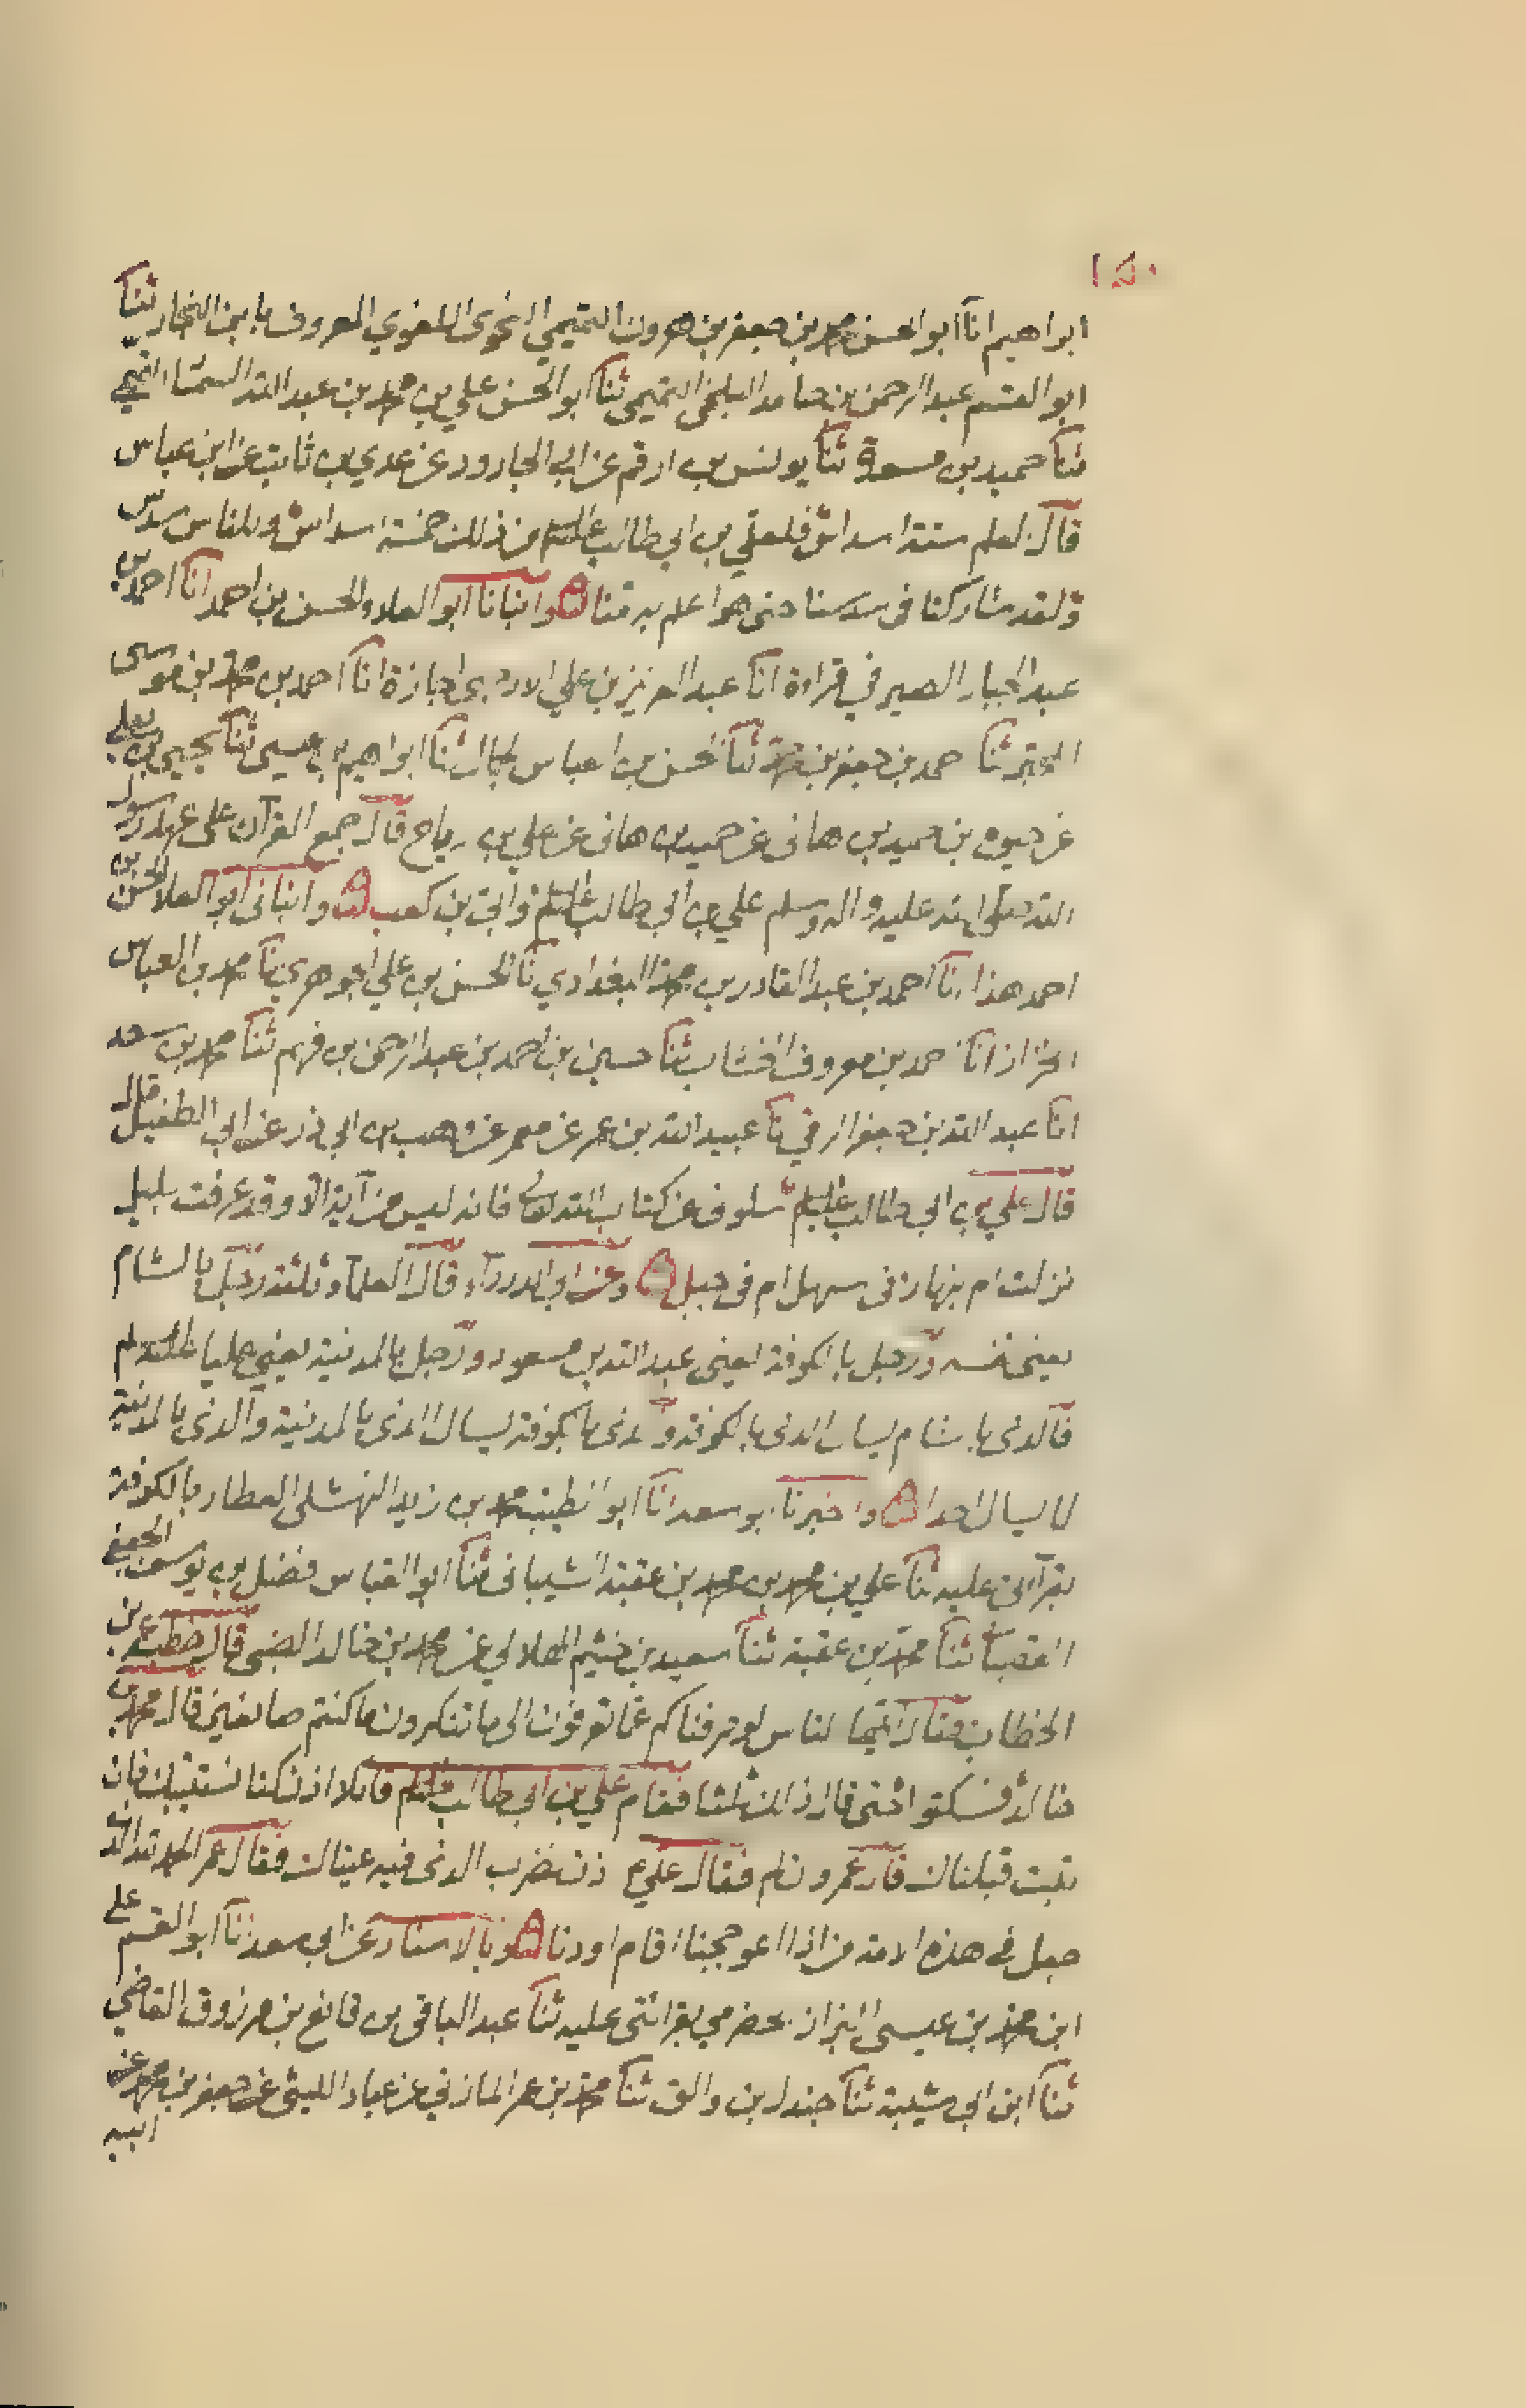 ١٥٠
ابراهيم انا ابو الحسن محمد بن جعفر بن هرون التميمي النحوى اللغوي المعروف بابن النجار ثنا
ابو القسم عبد الرحمن بن حامد البلخى التميمى ثنا ابو الحسن علي بن محمد بن عبد الله
ثنا حميد بن مسعدة ثنا يونس بن ارقم عن ابى الجارود عن عدي بن ثابت عن ابن عباس
قال العلم ستة اسداس فلعلي بن ابي طالب من ذلك خمسة اسداس وللناس سدس
ولقد شاركنا فى سدسنا حتى هو اعلم به منا ه وانبانا ابو العلاء الحسن بن احمد انا احمد بن
عبد الجبار الصيرفي قراءة انا عبد العزيز بن علي اجازة انا احمد بن محمد بن موسى
ثنا احمد بن جعفر بن ثنا الحسن بن العباس الجمال ثنا ابراهيم بن عيسى ثنا يحيى بن يعلى
عن حيوة بن حميد بن هانى عن حميد بن هانى عن علي بن رباح قال جمع القرآن على عهد رسول
الله صلى الله عليه واله وسلم علي بن ابي طالب وابي بن كعب ه وانبانى ابو العلا الحسن بن
احمد هذا انا احمد بن عبد القادر بن محمد البغدادي نا الحسن بن علي الجوهري نا محمد بن العباس
الخزاز انا احمد بن معروف الخشاب ثنا حسين بن احمد بن عبد الرحمن بن فهم ثنا محمد بن سعد
انا عبد الله بن جعفر الرقي نا عبيد الله بن عمر عن معمر عن وهب بن ابي ذر عن ابي الطفيل قال
قال علي بن ابي طالب سلونى عن كتاب الله تعالى فانه ليس من آية الا وقد عرفت بليل
نزلت ام بنهار فى سهل ام فى جبل ه وعن ابى الدرداء قال العلماء ثلثة رجل بالشام
يعنى نفسه ورجل بالكوفة يعنى عبد الله بن مسعود ورجل بالمدينة يعنى عليا
فالذى بالشام يسال الذى بالكوفة والذى بالكوفة يسال الذى بالمدينة والذى بالمدينة
لا يسال احدا ه واخبرنا ابو سعد انا ابو الطيب محمد بن زيد النهشلى العطار بالكوفة
بقرآتى عليه ثنا علي بن محمد بن محمد بن عقبة الشيبانى ثنا ابو العباس فضل بن يوسف الجعفى
القصبانى ثنا محمد بن عقبة ثنا سعيد بن خثيم الهلالي عن محمد بن خالد الضبى قال خطب عمر بن
الخطاب فقال ايها الناس لو صرفناكم عما تعرفون الى ما تنكرون ما كنتم صانعين قال محمد بن
خالد فسكتوا حتى قال ذلك ثلثا فقام علي بن ابي طالب قائلا اذن كنا نستتيبك فان
تبت قبلناك قال عمر وان لم فقال علي اذن نضرب الذى فيه عيناك فقال عمر الحمد لله الذى
جعل فى هذه الامة من اذا اعوججنا اقام اودنا ه وبالاسناد عن ابى سعد نا ابو القسم على
ابن محمد بن عيسى البزاز بحضرمي بقرائتى عليه ثنا عبد الباقى بن قانع بن مرزوق القاضي
ثنا ابن ابي شيبة ثنا جندل بن والق ثنا محمد بن عمر المازني عن عباد الليثى عن جعفر بن محمد عن
ابيه